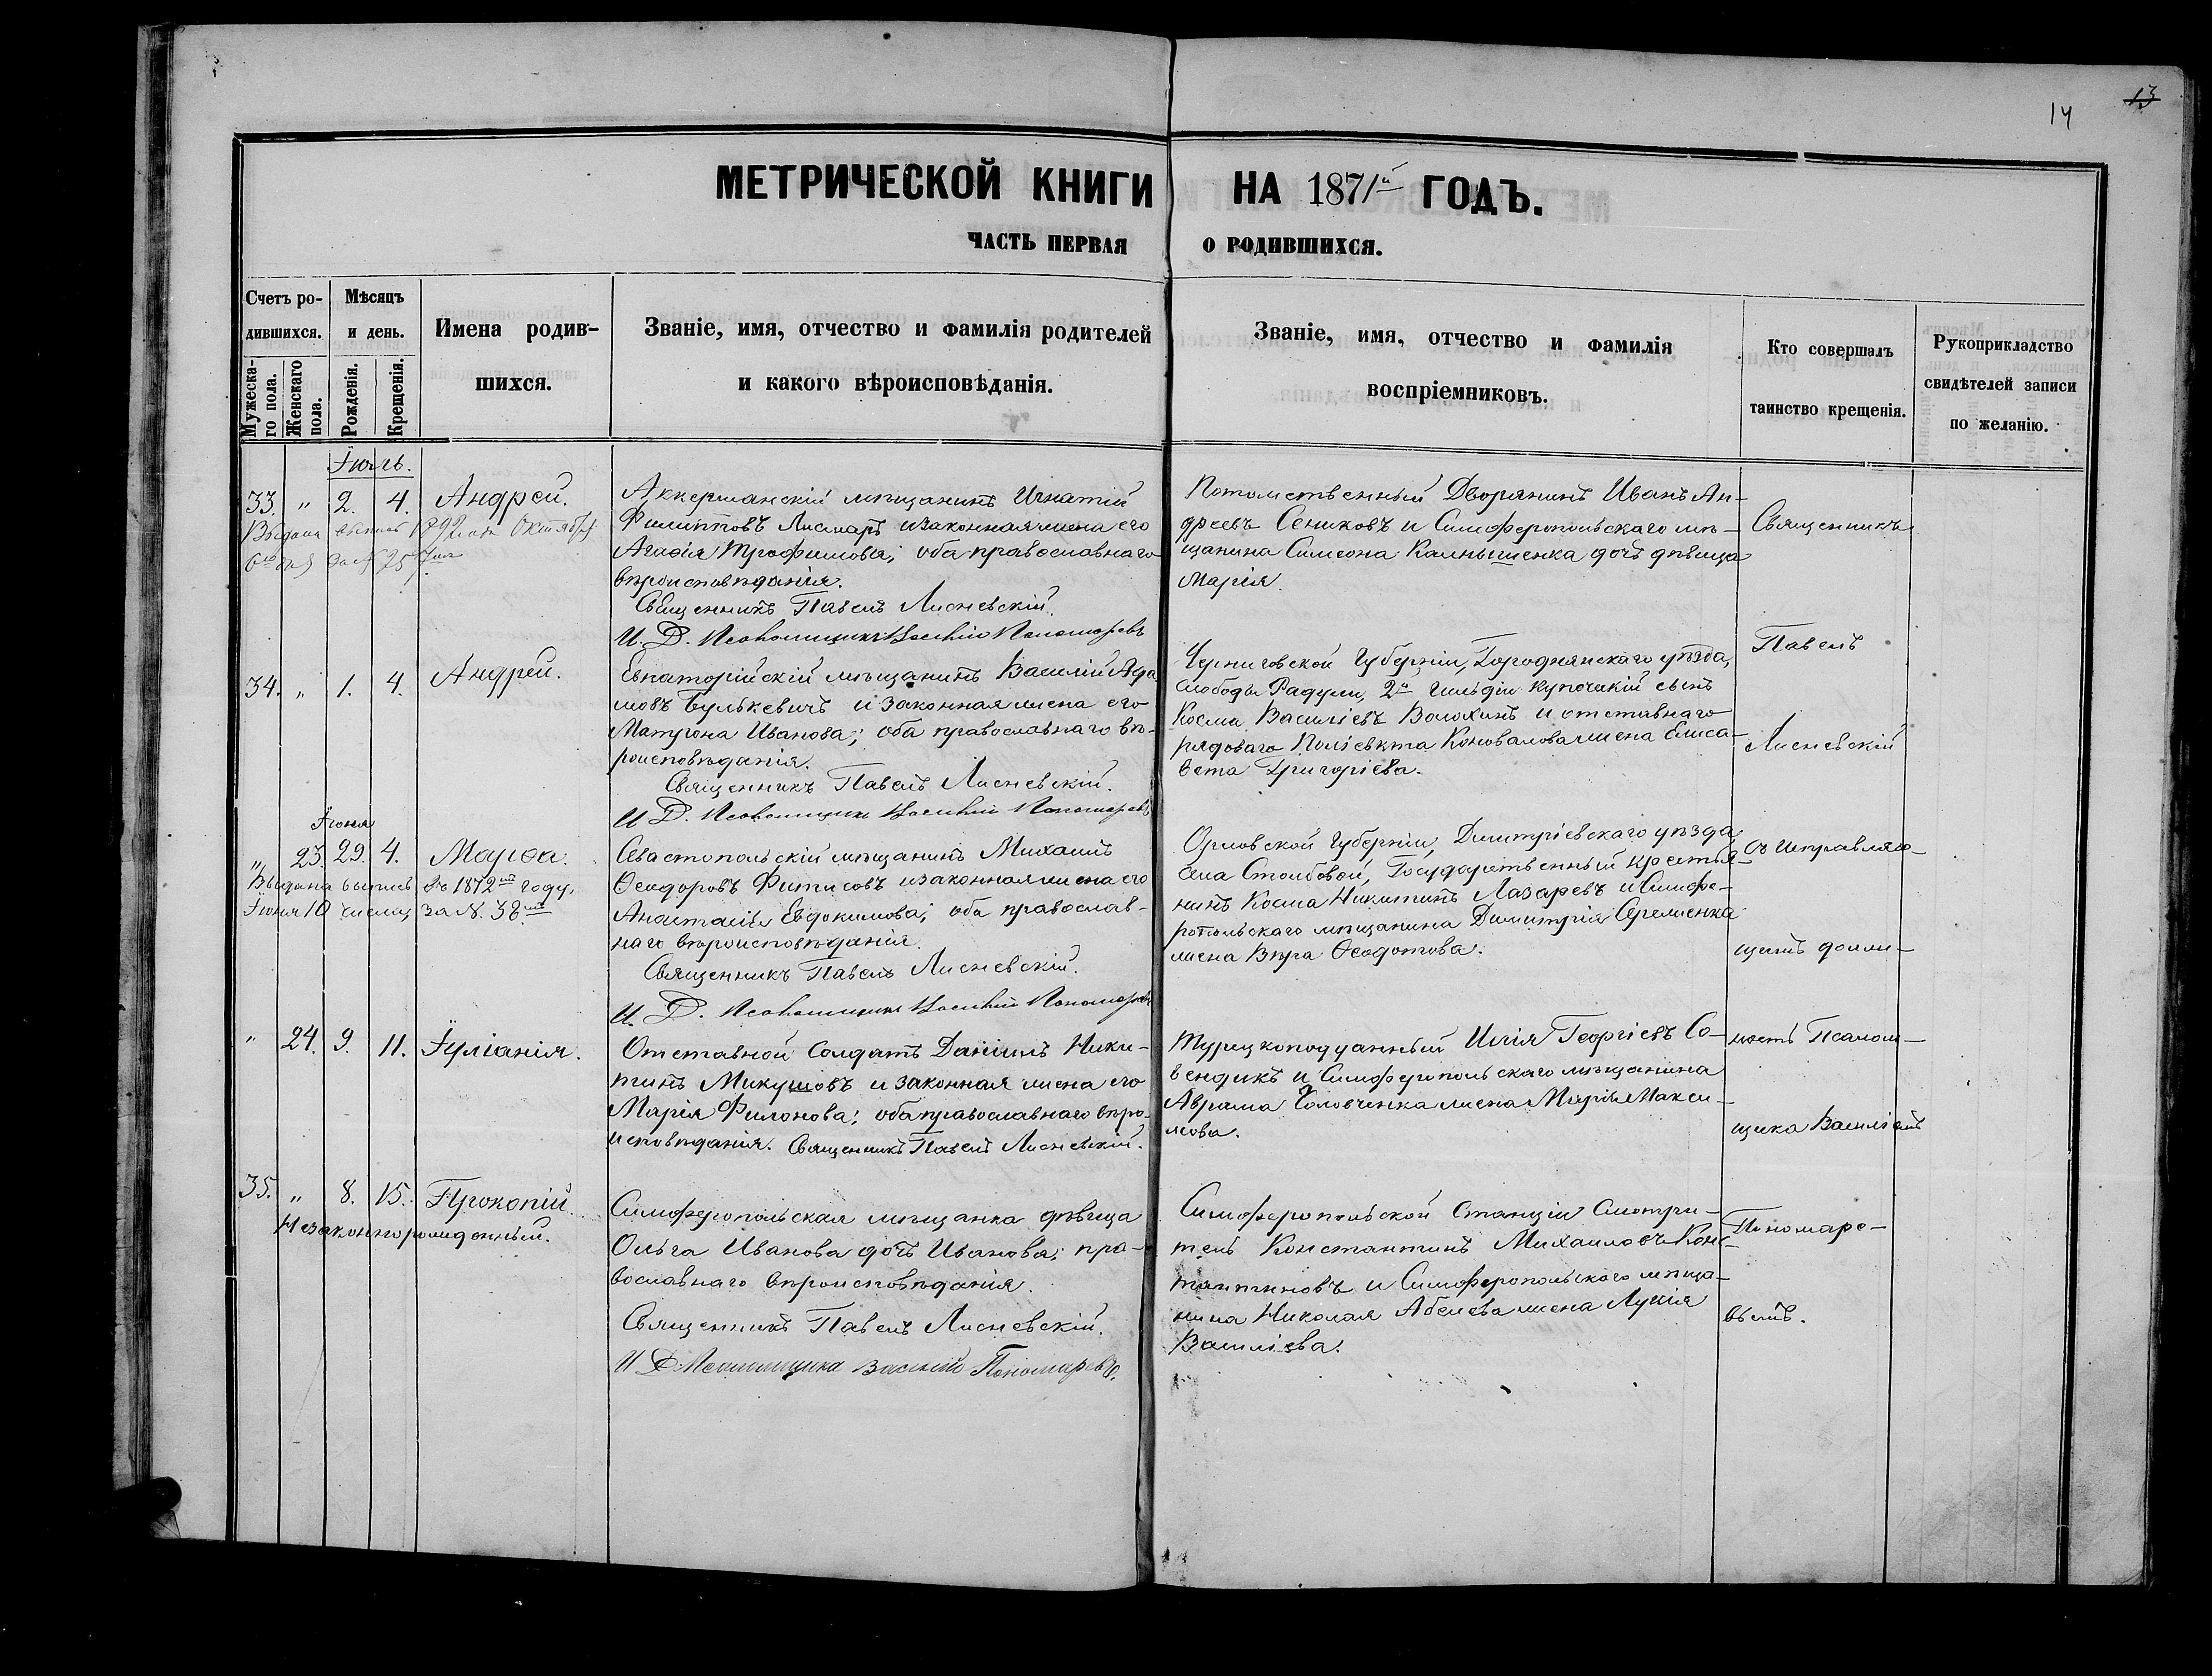 14
13
МЕТРИЧЕСКОЙ КНИГИ НА 1871й ГОДЪ.
ЧАСТЬ ПЕРВАЯ О РОДИВШИХСЯ.
Счетъ ро-
дившихся.
Мужеска-
го пола.
Женскаго
пола.
Мѣсяцъ
и день.
Рожденія.
Крещенія.
Имена родив-
шихся.
Званіе, имя, отчество и фамилія родителей
и какого вѣроисповѣданія.
Званіе, имя, отчество и фамилія
воспріемниковъ.
Кто совершалъ
таинство крещенія.
Рукоприкладство
свидѣтелей записи
по желанію.
Іюль.
33. " 2. 4. Андрей.
Выдана выпись 1892 года Октября
Аккерманскій мѣщанинъ Игнатій
Филипповъ Лисмаръ и законная жена его
Агаѳія Трофимова; оба православнаго
вѣроисповѣданія.
Священникъ Павелъ Лисневскій.
И. Д. Псаломщика Василій Пономаревъ
Потомственный Дворянинъ Иванъ Ан-
дреевъ Сениковъ и Симферопольскаго мѣ-
щанина Симеона Калнышенка дочь дѣвица
Марія.
34. " 1. 4. Андрей.
Евпаторійскій мѣщанинъ Василій Ада-
мовъ Булькевичъ и законная жена его
Матрона Иванова; оба православнаго вѣ-
роисповѣданія.
Священникъ Павелъ Лисневскій.
И Д. Псаломщика Василій Пономаревъ
Черниговской Губерніи, Городнянскаго уѣзда,
слободы Радули, 2й гильдіи купеческій сынъ
Косма Василіевъ Волохинъ и отставнаго
рядоваго Поліевкта Коновалова жена Елиса-
вета Григоріева.
Іюня
" 23. 29. 4. Марѳа.
Выдана выпись въ 1872мъ году,
Іюня 10 числа, за №. 38мъ
Севастопольскій мѣщанинъ Михаилъ
Ѳеодоровъ Фитисовъ и законная жена его
Анастасія Евдокимова; оба православ-
наго вѣроисповѣданія.
Священникъ Павелъ Лисневскій.
И. Д. Псаломщика Василій Пономаревъ
Орловской Губерніи, Димитріевскаго уѣзда
села Столбовой, Государственный крестья-
нинъ Косма Никитинъ Лазаревъ и Симфе-
ропольскаго мѣщанина Димитрія Яременка
жена Вѣра Ѳеодотова.
" 24. 9. 11. Іуліанія.
Отставной Солдатъ Даніилъ Ники-
тинъ Микушовъ и законная жена его
Марія Филонова; оба православнаго вѣро-
исповѣданія. Священникъ Павелъ Лисневскій.
Турецкоподданный Илія Георгіевъ Со-
вендикъ и Симферопольскаго мѣщанина
Авраама Головченка жена Марія Макси-
мова.
35. " 8. 15. Прокопій.
Незаконнорожденный.
Симферопольская мѣщанка дѣвица
Ольга Иванова дочь Иванова; пра-
вославнаго вѣроисповѣданія.
Священникъ Павелъ Лисневскій.
И Д. Псаломщика Василій Пономаревъ.
Симферопольской Станціи Смотри-
тель Константинъ Михаиловъ Конс-
тантиновъ и Симферопольскаго мѣща-
нина Николая Абелева жена Лукія
Василіева.
Священникъ
Павелъ
Лисневскій
съ Исправляю-
щимъ долж-
ность Псалом-
щика Василіемъ
Пономаре-
вымъ.